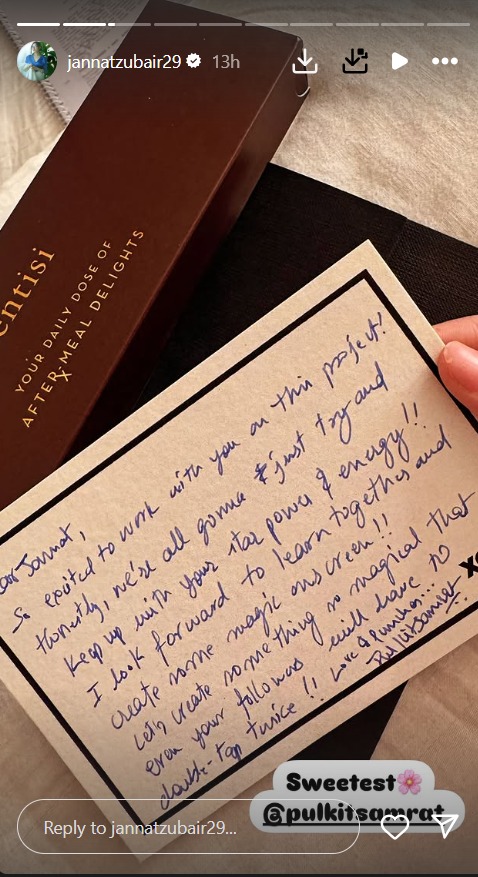 jannatzubair29 13h
entisi
YOUR DAILY DOSE OF
AFTER MEAL DELIGHTS
ear Jannat,
So excited to work with you on this project!
Honestly, we're all gonna just try and
keep up with your star power & energy!!
I look forward to learn together and
create some magic onscreen!!
Let's create something so magical that
even your followers will have to
double-tap twice!! Love & Punches...
Pulkit Samrat
Sweetest🌸
@pulkitsamrat
Reply to jannatzubair29...